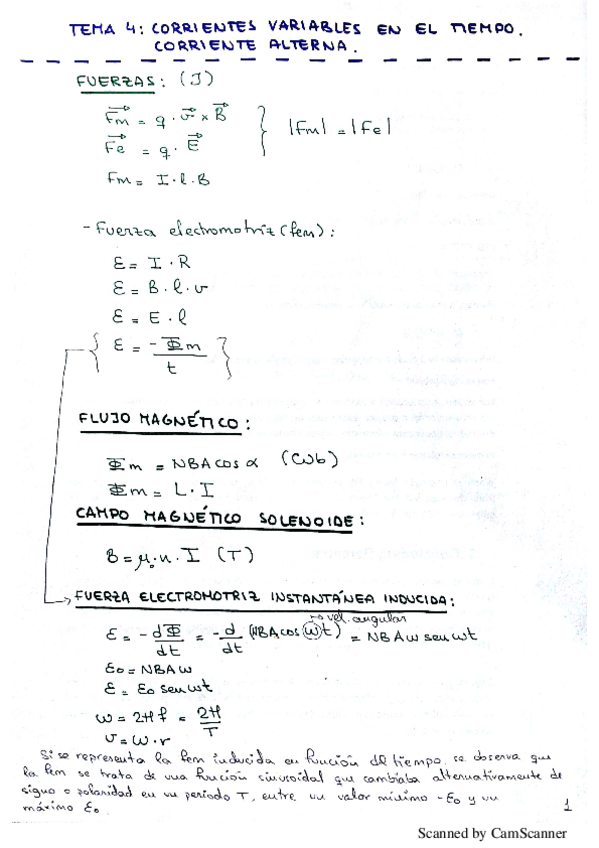 TEMA 4: CORRIENTES VARIABLES EN EL TIEMPO.
CORRIENTE ALTERNA.
FUERZAS: (J)
Fm = q · v × B
Fe = q · E
|Fm| = |Fe|
Fm = I · l · B
- Fuerza electromotriz (fem):
ε = I · R
ε = B · l · v
ε = E · l
ε = -Φm / t
FLUJO MAGNÉTICO:
Φm = NBA cos α (Wb)
Φm = L · I
CAMPO MAGNÉTICO SOLENOIDE:
B = μ₀ · n · I (T)
FUERZA ELECTROMOTRIZ INSTANTÁNEA INDUCIDA:
→ vel. angular
ε = -dΦ/dt = -d/dt (NBA cos ωt) = NBAω sen ωt
ε₀ = NBAω
ε = ε₀ sen ωt
ω = 2πf = 2π/T
v = ω · r
Si se representa la fem inducida en función del tiempo, se observa que
la fem se trata de una función sinusoidal que cambiaba alternativamente de
signo o polaridad en un periodo T, entre un valor mínimo -ε₀ y un
máximo ε₀.
1
Scanned by CamScanner